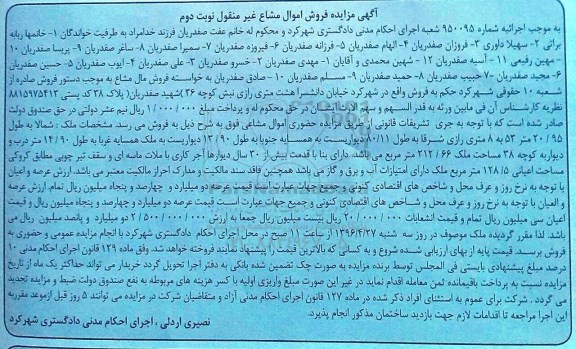 آگهی مزایده فروش اموال مشاع غیر منقول نوبت دوم
به موجب اجرائیه شماره ۹۵۰۰۹۵ شعبه اجرای احکام مدنی دادگستری شهرکرد و محکوم له خانم عفت صفدریان فرزند خدامراد به طرفیت خواندگان ۱- خانمها ربابه
براتی ۲- سهیلا داوری ۳- فروزان صفدریان ۴- الهام صفدریان ۵- فرزانه صفدریان ۶- فیروزه صفدریان ۷- سمیرا صفدریان ۸- ساغر صفدریان ۹- پریسا صفدریان ۱۰
- مهین رفیعی ۱۱- آسیه صفدریان ۱۲- شهین محمدی و آقایان ۱- مهدی صفدریان ۲- خسرو صفدریان ۳- علی صفدریان ۴- ایوب صفدریان ۵- حسین صفدریان
۶- مجید صفدریان ۷- حبیب صفدریان ۸- حمید صفدریان ۹- مسلم صفدریان ۱۰- صادق صفدریان به خواسته فروش مال مشاع به موجب دستور فروش صادره از
شعبه ۱۰ حقوقی شهرکرد حکم به فروش واقع در شهرکرد خیابان دانشسرا هشت متری رازی نبش کوچه ۳۶ (شهید صفدریان) پلاک ۳۸ کد پستی ۸۸۱۵۹۷۵۴۱۳
نظریه کارشناس آن فی مابین ورثه به قدر السهم و سهم الارث ایشان در حق محکوم له و پرداخت مبلغ ۱/۰۰۰/۰۰۰ ریال نیم عشر دولتی در حق صندوق دولت
صادر شده است که با توجه به جری تشریفات قانونی از طریق مزایده حضوری اموال مشاعی فوق به شرح ذیل به فروش می رسد. مشخصات ملک : شمالا به طول
۲۰/۹۵ متر ۵۳ به ۸ متری رازی شرقا به طول ۱۰/۱۱ دیواریست به همسایه جنوبا به طول ۱۳/۹۰ دیواریست به ملک همسایه غربا به طول ۱۴/۹۰ متر درب و
دیواربه کوچه ۳۸ مساحت ملک ۲۱۲/۶۶ متر مربع می باشد. دارای بنا با قدمت بیش از ۳۰ سال دیوارها آجر کاری با ملات ماسه ای و سقف تیر چوبی مطابق کروکی
مساحت اعیانی ۱۲۸/۱۵ متر مربع ملک دارای امتیازات آب و برق و گاز می باشد همچنین فاقد سند مالکیت و مدارک احراز مالکیت معتبر می باشد. ارزش عرصه واعیان
با توجه به نرخ روز و عرف محل و شاخص های اقتصادی کنونی و جمیع جهات عبارت است قیمت عرصه دو میلیارد و چهارصد و پنجاه میلیون ریال تمام. ارزش عرصه
و العیان با توجه به نرخ روز و عرف محل و شاخص های اقتصادی کنونی و جمیع جهات عبارت است قیمت عرصه دو میلیارد و چهارصد و پنجاه میلیون ریال و قیمت
اعیان سی میلیون ریال تمام و قیمت انشعابات ۲۰/۰۰۰/۰۰۰ ریال بیست میلیون ریال جمعا به ارزش ۲/۵۰۰/۰۰۰/۰۰۰ دو میلیارد و پانصد میلیون ریال می
باشد. لذا مقرر گردیده ملک موصوف در روز سه شنبه ۱۳۹۶/۴/۲۷ از ساعت ۱۱ صبح در محل اجرای احکام دادگستری شهرکرد با انجام مزایده عمومی و حضوری به
فروش برسد. قیمت پایه از بهای ارزیابی شده شروع و به کسانی که بالاترین قیمت را پیشنهاد نمایند فروخته خواهد شد. وفق ماده ۱۲۹ قانون اجرای احکام مدنی ۱۰
درصد مبلغ پیشنهادی بایستی فی المجلس توسط برنده مزایده به صورت چک تضمین شده بانکی به دفتر اجرا تحویل گردد خریدار می تواند حداکثر یک ماه از تاریخ
مزایده نسبت به پرداخت باقیمانده ثمن معامله اقدام نماید در غیر این صورت مبلغ واریزی اولیه با کسر هزینه های مربوطه به نفع صندوق دولت ضبط و مزایده تجدید
می گردد . شرکت برای عموم به استثنای افراد ذکر شده در ماده ۱۲۷ قانون اجرای احکام مدنی آزاد و متقاضیان شرکت در مزایده می توانند ۵ روز قبل ازموعد مقرربه
این اجرا مراجعه تا اقدامات لازم جهت بازدید ساختمان مذکور انجام پذیرد.
نصیری اردلی ، اجرای احکام مدنی دادگستری شهرکرد